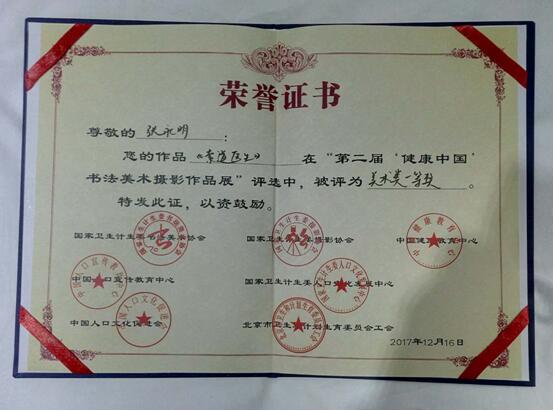 荣誉证书
尊敬的 张永明 :
您的作品《 》在“第二届‘健康中国’
书法美术摄影作品展”评选中，被评为 美术类一等奖 。
特发此证，以资鼓励。
国家卫生计生委 美术协会 国家卫生 摄影协会 中国健康教育中心
中国人口宣传教育中心 国家卫生计生委人口文化发展中心
中国人口文化促进会 北京市卫生和计划生育委员会工会
2017年12月16日